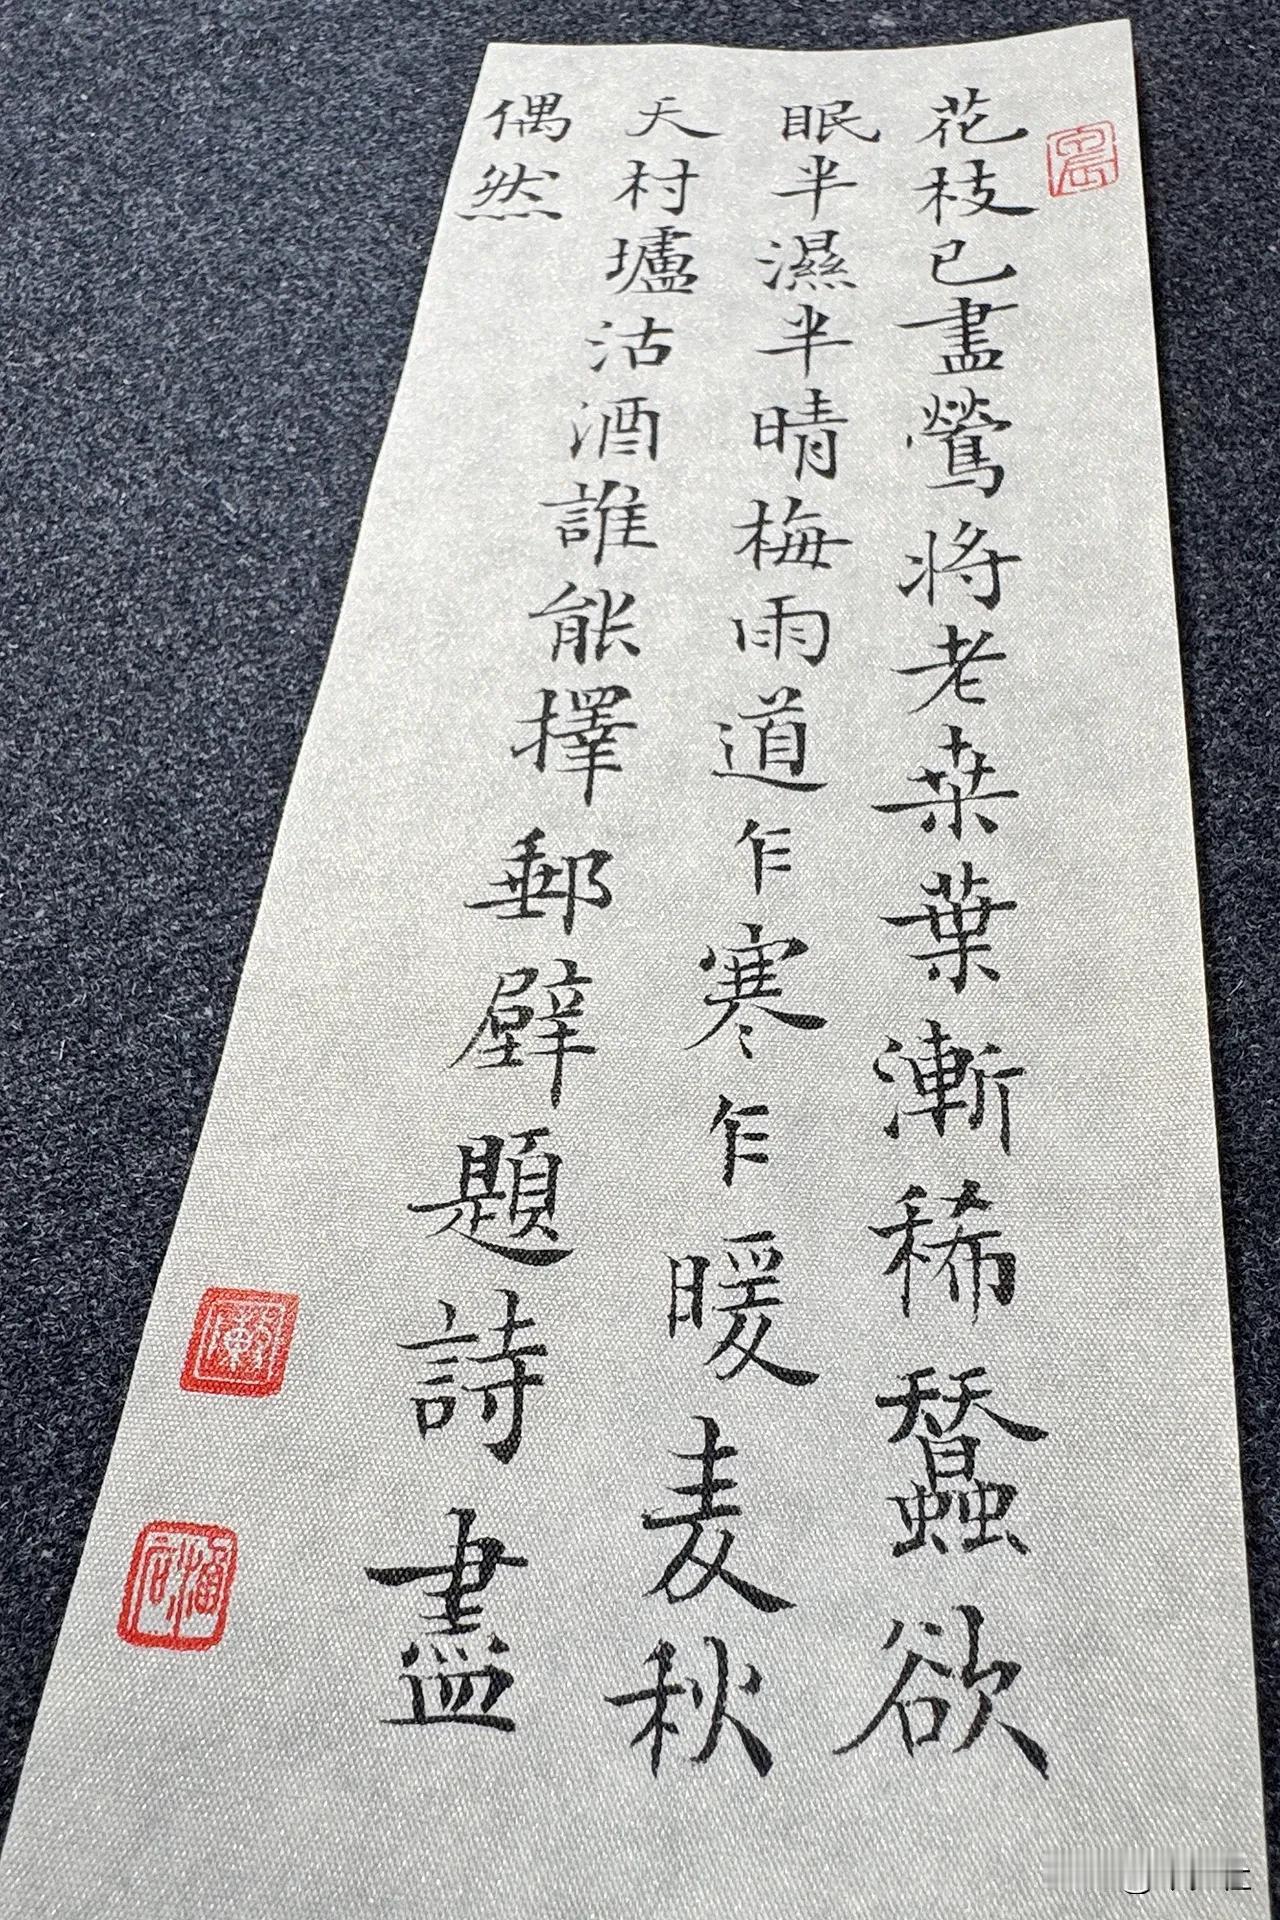 花枝已盡鶯將老桒葉漸稀蠶欲
眠半濕半晴梅雨道乍寒乍暖麦秋
天村壚沽酒誰能擇郵壁題詩盡
偶然